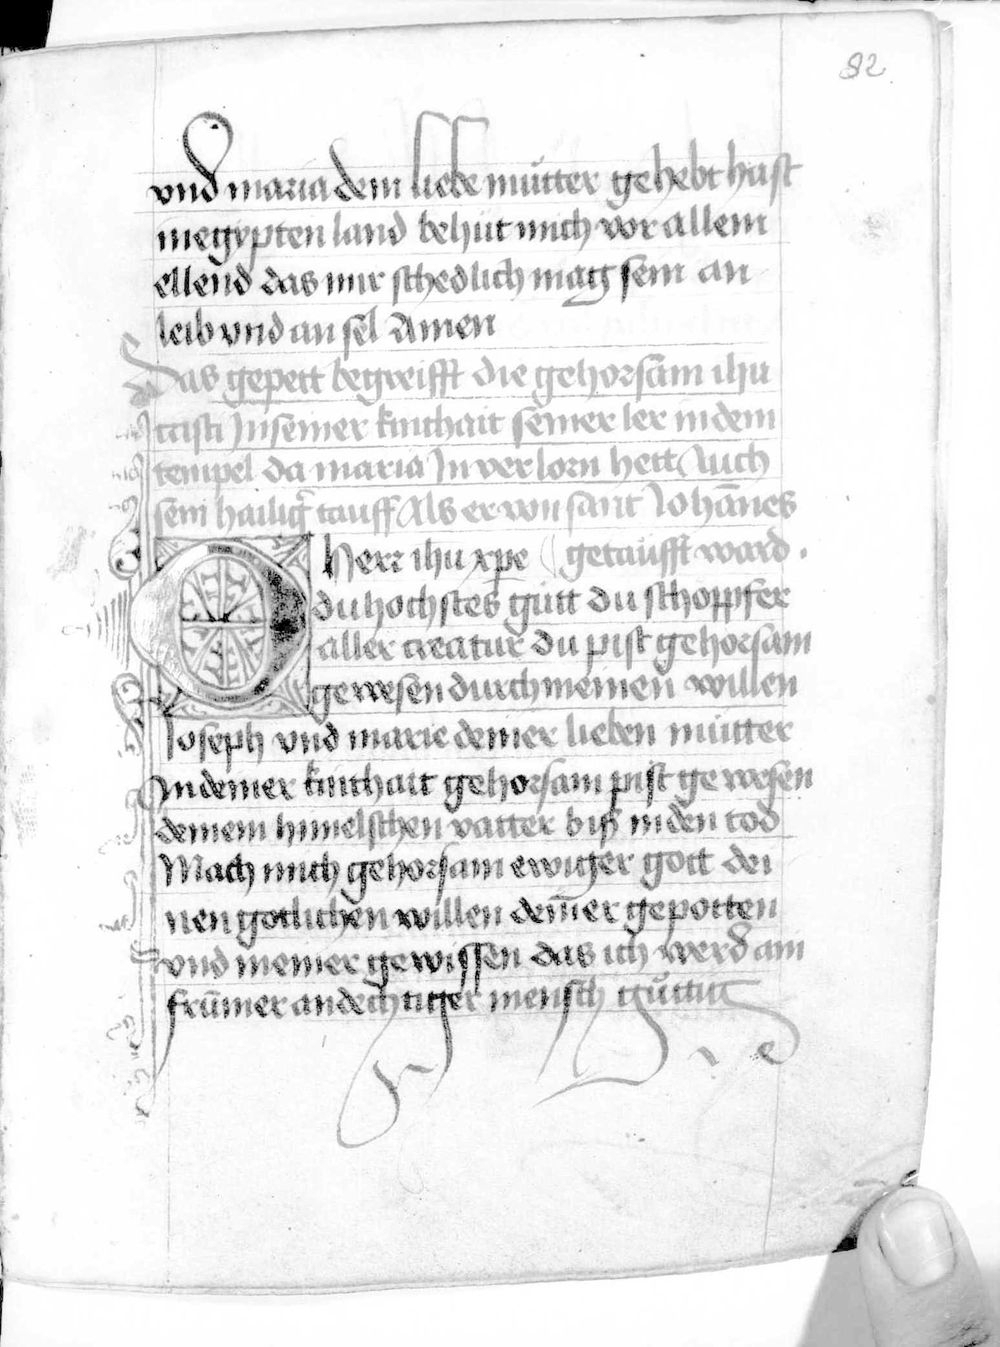 82
vnd maria dem liebe mutter gehebt hast
in egypten land behut mich vor allem
ellend das mir schedlich mag sein an
leib vnd an sel Amen
Das gepett begreifft die gehorsam ihu
cristi In seiner kinthait seiner ler in dem
tempel da maria In verlorn hett Auch
sein hailig tauff Als er von sant Johānes
O herr ihu xpe getaufft ward.
du hochstes gutt du schopffer
aller creatur du pist gehorsam
gewesen durch meinen willen
Joseph vnd marie deiner lieben mutter
In deiner kinthait gehorsam pist gewesen
deinem himelschen vatter biß in den tod
Mach mich gehorsam ewiger gott dei
nen gotlichen willen deiner gepotten
vnd meiner gewissen das ich werd ain
frūmer andechtiger mensch guttig